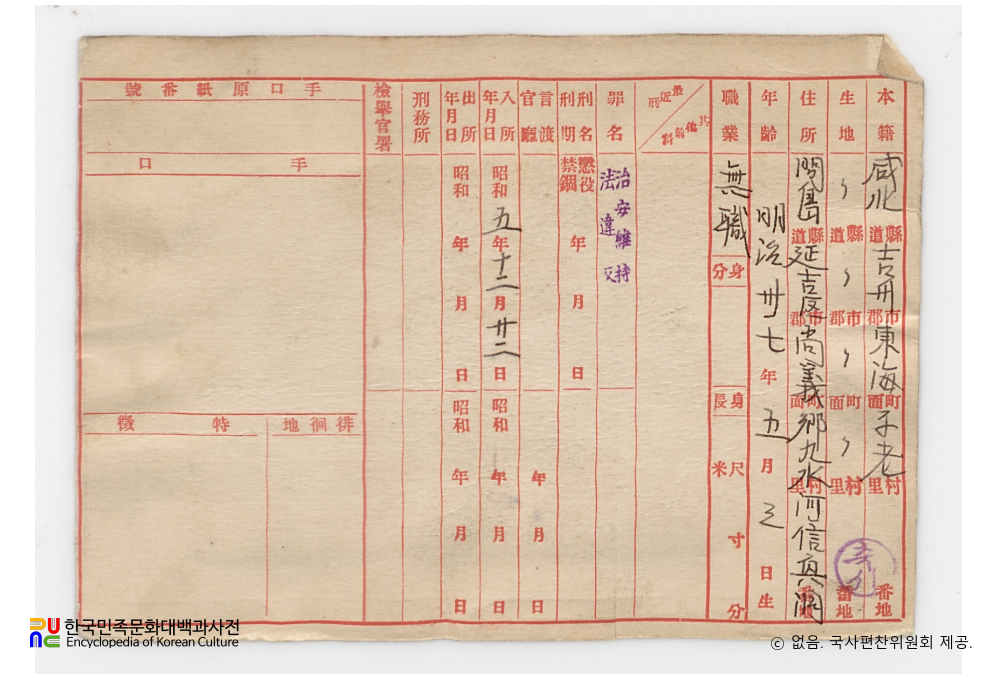 本籍 咸北道縣吉州郡市東海面町 里村 番地
生地 〃道縣〃郡市〃面町〃里村 番地
住所 間島道縣延吉 郡市尚義面町鄉九水里村河信 洞番地
年齡 明治卅七年五月 日生
職業 無職
身分
身長 尺米 寸 分
最近刑 其他前科
罪名 治安維持法違反
刑名刑期 懲役禁錮 年 月 日
言渡官廳 年 月 日
入所年月日 昭和五年十二月廿二日 昭和 年 月 日
出所年月日 昭和 年 月 日 昭和 年 月 日
刑務所
檢擧官署
手口原紙番號
手口
徘徊地
特徵
한국민족문화대백과사전
Encyclopedia of Korean Culture
ⓒ 없음. 국사편찬위원회 제공.